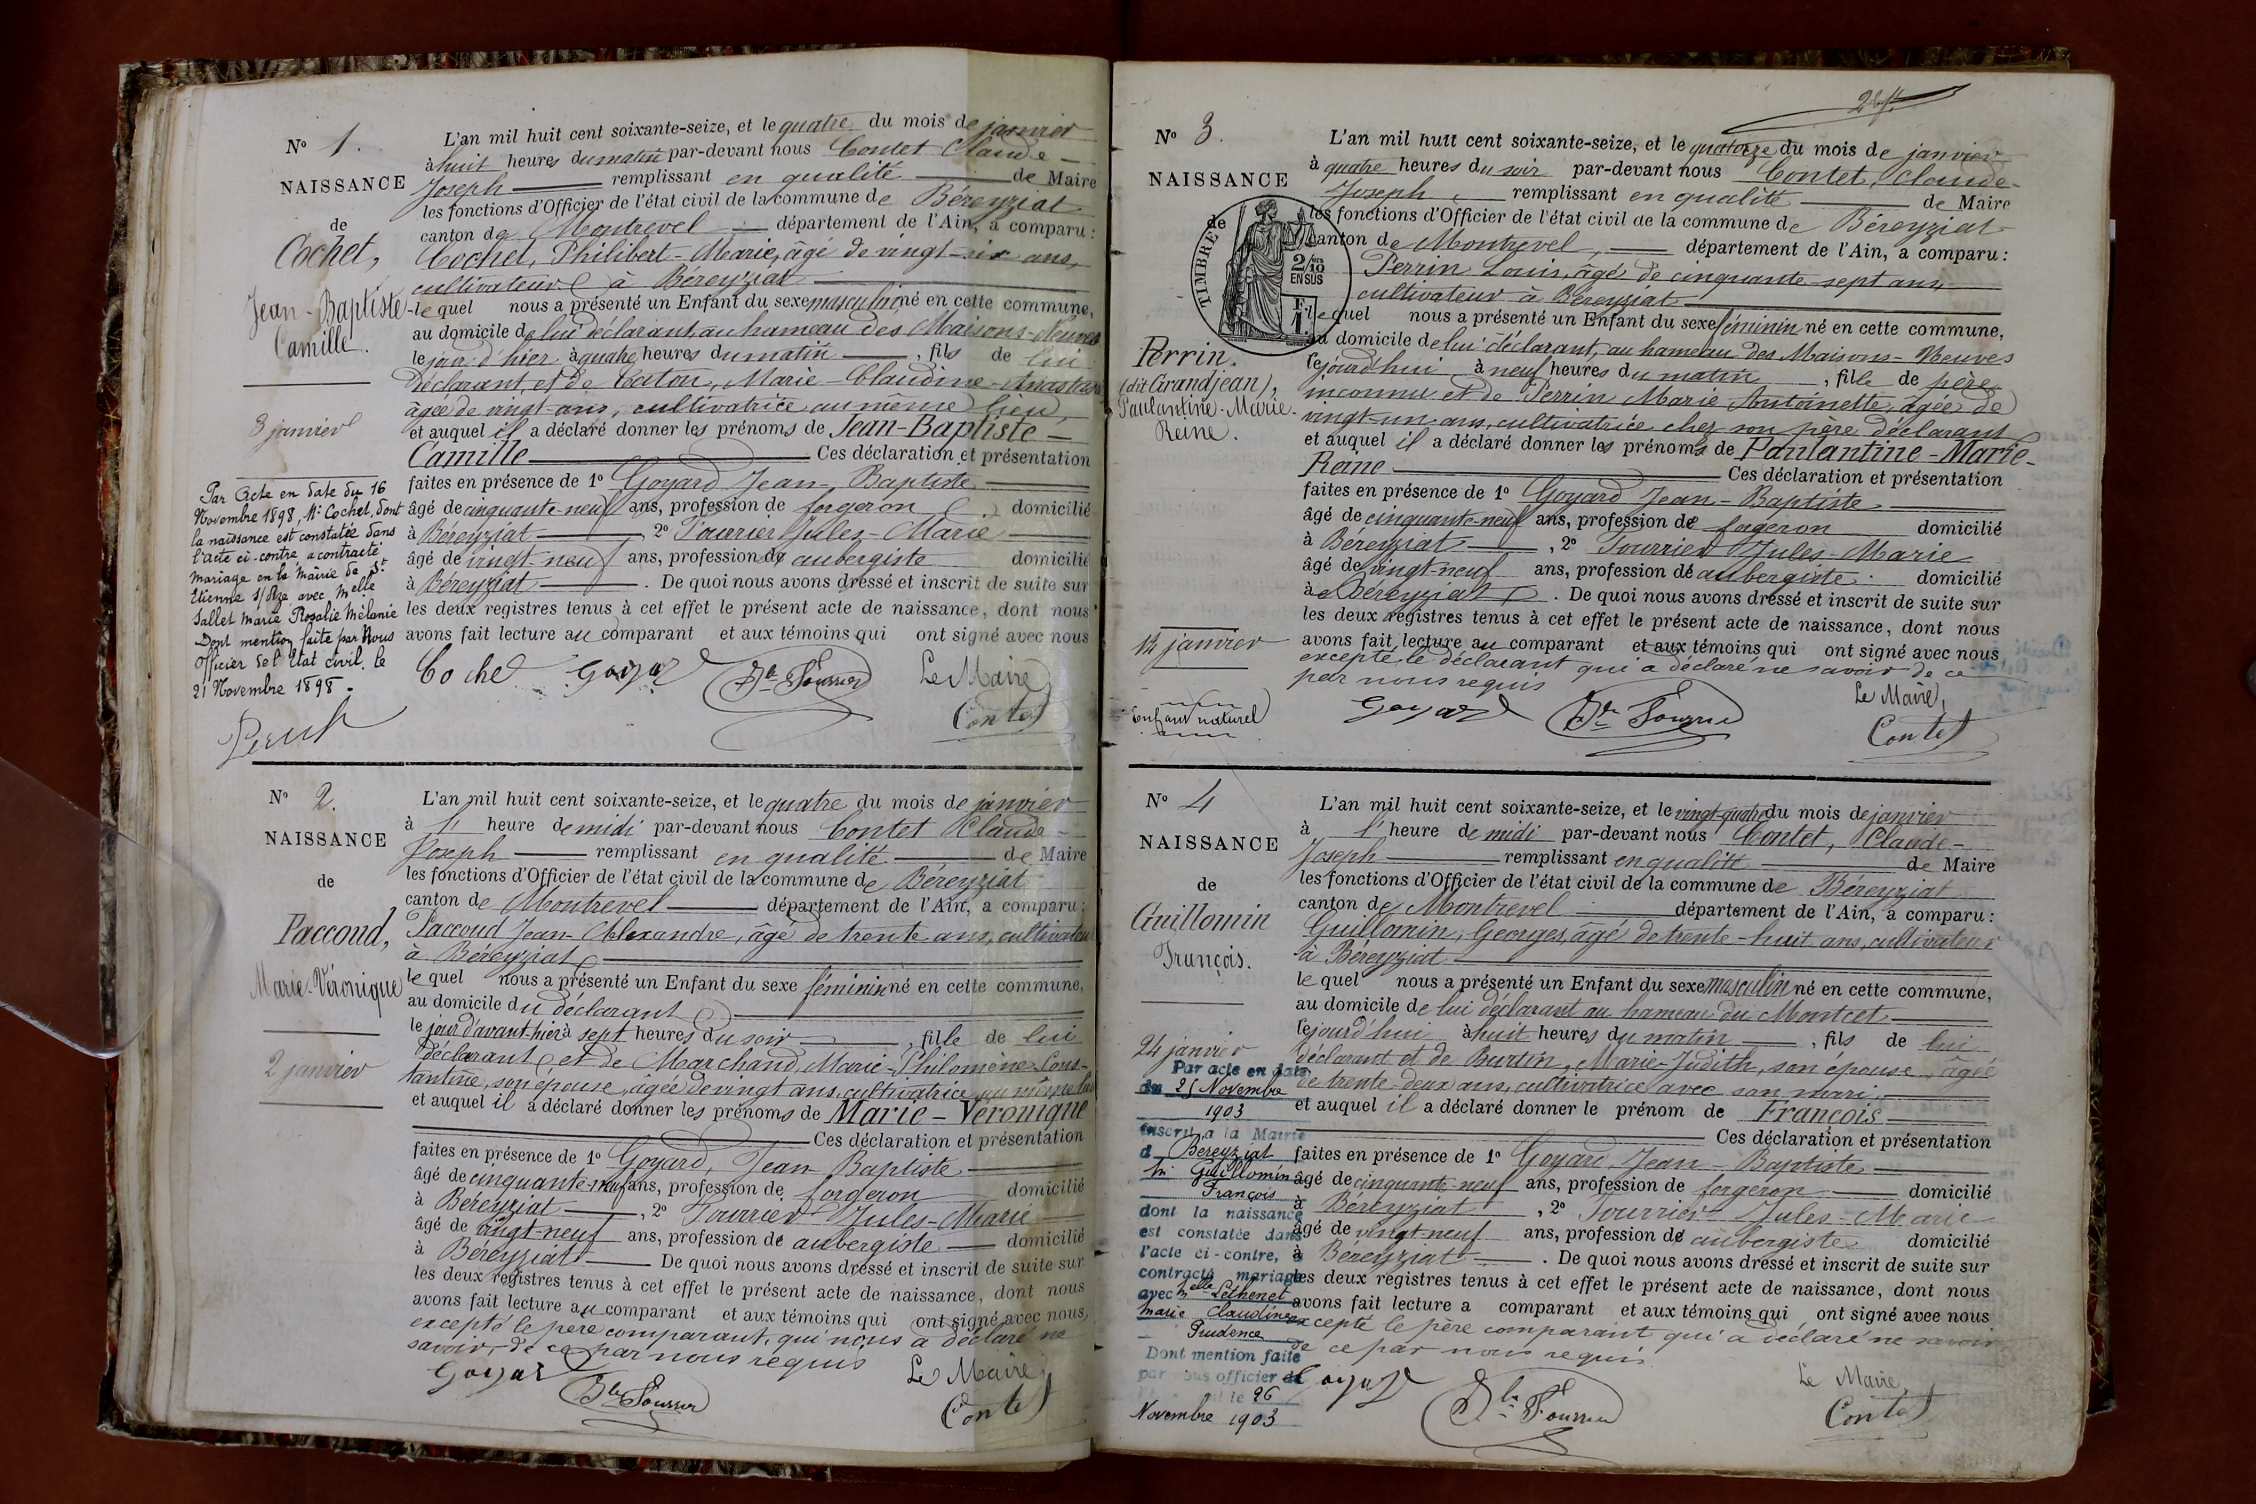 N° 1.
NAISSANCE
de
Cochet,
Jean-Baptiste-
Camille.
3 janvier
Par Acte en date du 16
Novembre 1898, Mr Cochet, dont
la naissance est constatée dans
l'acte ci-contre, a contracté
mariage en la mairie de St
Etienne s/ Rze avec Melle
Sallet Marie Rosalie Mélanie
Dont mention faite par Nous
Officier de l'Etat civil, le
21 Novembre 1898.
L'an mil huit cent soixante-seize, et le quatre du mois de janvier
à huit heures du matin par-devant nous Contet Claude-
Joseph remplissant en qualité de Maire
les fonctions d'Officier de l'état civil de la commune de Béreyziat
canton de Montrevel département de l'Ain, a comparu :
Cochet, Philibert-Marie, âgé de vingt-six ans,
cultivateur à Béreyziat
lequel nous a présenté un Enfant du sexe masculin, né en cette commune,
au domicile de lui déclarant, au hameau des Maisons-Neuves
le jour d'hier à quatre heures du matin, fils de lui
déclarant, et de Caton, Marie-Claudine-
âgée de vingt ans, cultivatrice au même lieu,
et auquel il a déclaré donner les prénoms de Jean-Baptiste-
Camille Ces déclaration et présentation
faites en présence de 1° Goyard Jean-Baptiste
âgé de cinquante-neuf ans, profession de forgeron domicilié
à Béreyziat 2° Tourrier Jules-Marie
âgé de vingt-neuf ans, profession de aubergiste domicilié
à Béreyziat. De quoi nous avons dressé et inscrit de suite sur
les deux registres tenus à cet effet le présent acte de naissance, dont nous
avons fait lecture au comparant et aux témoins qui ont signé avec nous
Cochet Goyard Le Maire
Contet
N° 2.
NAISSANCE
de
Paccoud,
Marie-Véronique
2 janvier
L'an mil huit cent soixante-seize, et le quatre du mois de janvier
à 1' heure de midi par-devant nous Contet Claude-
Joseph remplissant en qualité de Maire
les fonctions d'Officier de l'état civil de la commune de Béreyziat
canton de Montrevel département de l'Ain, a comparu :
Paccoud Jean-Alexandre, âgé de trente ans, cultivateur
à Béreyziat
lequel nous a présenté un Enfant du sexe féminin né en cette commune,
au domicile du déclarant
le jour d'avant-hier à sept heures du soir, fille de lui
déclarant et de Marchand, Marie-Philomène-Cons-
tantine, son épouse, âgée de vingt ans, cultivatrice au même lieu
et auquel il a déclaré donner les prénoms de Marie-Véronique
Ces déclaration et présentation
faites en présence de 1° Goyard, Jean-Baptiste
âgé de cinquante-neuf ans, profession de forgeron domicilié
à Béreyziat, 2° Tourrier Jules-Marie
âgé de vingt-neuf ans, profession de aubergiste domicilié
à Béreyziat De quoi nous avons dressé et inscrit de suite sur
les deux registres tenus à cet effet le présent acte de naissance, dont nous
avons fait lecture au comparant et aux témoins qui ont signé avec nous,
excepté le père comparant, qui nous a déclaré ne
savoir, de ce par nous requis
Goyard Le Maire
Contet
N° 3.
NAISSANCE
de
TIMBRE
2/10
EN SUS
Perrin
(dit Grandjean),
Paulantine-Marie-
Reine.
14 janvier
Enfant naturel
L'an mil huit cent soixante-seize, et le quatorze du mois de janvier
à quatre heures du soir par-devant nous Contet, Claude-
Joseph remplissant en qualité de Maire
les fonctions d'Officier de l'état civil de la commune de Béreyziat
canton de Montrevel, département de l'Ain, a comparu :
Perrin Louis, âgé de cinquante-sept ans
cultivateur à Béreyziat
lequel nous a présenté un Enfant du sexe féminin né en cette commune,
au domicile de lui déclarant, au hameau des Maisons-Neuves
lejourd'hui à neuf heures du matin, fille de père
inconnu et de Perrin Marie Antoinette, âgée de
vingt-un ans, cultivatrice chez son père déclarant
et auquel il a déclaré donner les prénoms de Paulantine-Marie-
Reine Ces déclaration et présentation
faites en présence de 1° Goyard Jean-Baptiste
âgé de cinquante-neuf ans, profession de forgeron domicilié
à Béreyziat, 2° Tourrier Jules-Marie
âgé de vingt-neuf ans, profession de aubergiste domicilié
à Béreyziat. De quoi nous avons dressé et inscrit de suite sur
les deux registres tenus à cet effet le présent acte de naissance, dont nous
avons fait lecture au comparant et aux témoins qui ont signé avec nous
excepté le déclarant qui a déclaré ne savoir de ce
par nous requis
Goyard Le Maire,
Contet
N° 4
NAISSANCE
de
Guillomin
François.
24 janvier
Par acte en date
du 25 Novembre
1903
inscrit à la Mairie
d Béreyziat
Mr Guillomin
François
dont la naissance
est constatée dans
l'acte ci-contre, a
contracté mariage
avec Melle Lethenet
Marie Claudine
Prudence
Dont mention faite
par nous officier de
le 26
Novembre 1903
L'an mil huit cent soixante-seize, et le vingt-quatre du mois de janvier
à 1' heure de midi par-devant nous Contet, Claude-
Joseph remplissant en qualité de Maire
les fonctions d'Officier de l'état civil de la commune de Béreyziat
canton de Montrevel département de l'Ain, a comparu :
Guillomin, Georges, âgé de trente-huit ans, cultivateur
à Béreyziat
lequel nous a présenté un Enfant du sexe masculin né en cette commune,
au domicile de lui déclarant au hameau du Montcet
lejourd'hui à huit heures du matin, fils de lui
déclarant et de Burtin, Marie-Judith, son épouse, âgée
de trente-deux ans, cultivatrice avec son mari,
et auquel il a déclaré donner le prénom de François
Ces déclaration et présentation
faites en présence de 1° Goyard Jean-Baptiste
âgé de cinquante-neuf ans, profession de forgeron domicilié
à Béreyziat, 2° Tourrier Jules-Marie
âgé de vingt-neuf ans, profession de aubergiste domicilié
à Béreyziat. De quoi nous avons dressé et inscrit de suite sur
les deux registres tenus à cet effet le présent acte de naissance, dont nous
avons fait lecture a comparant et aux témoins qui ont signé avec nous
excepté le père comparant qui a déclaré ne savoir
de ce par nous requis
Goyard Le Maire,
Contet